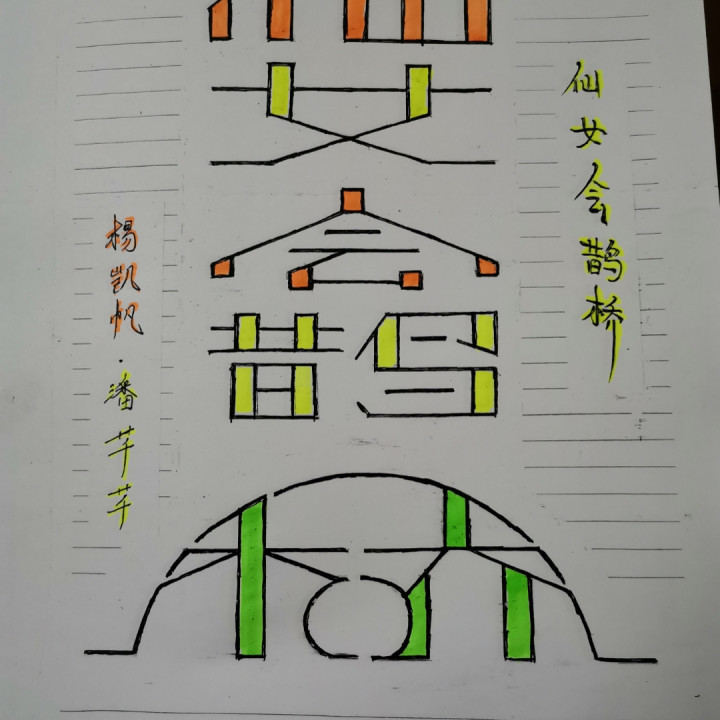 仙女会鹊桥
仙女会鹊桥
杨凯帆·潘芊芊